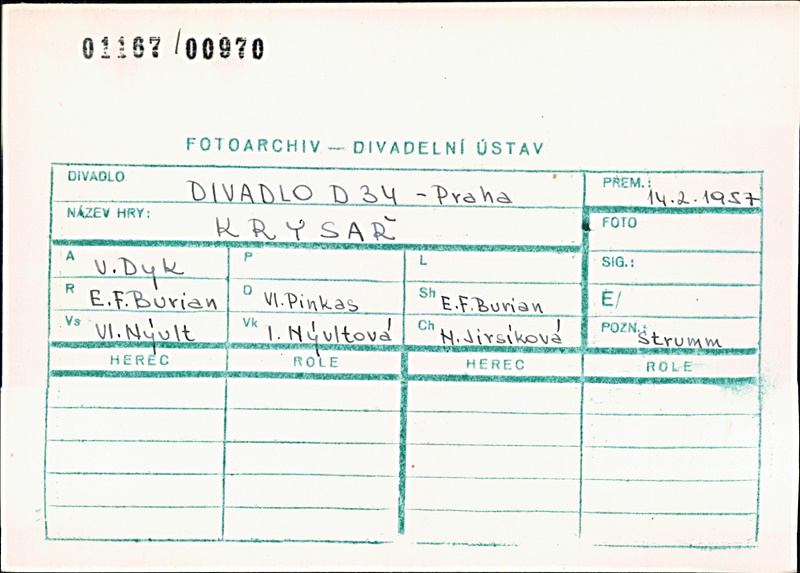 01167/00970
FOTOARCHIV — DIVADELNÍ ÚSTAV
DIVADLO DIVADLO D 34 - Praha
PŘEM.: 14.2.1957
NÁZEV HRY: KRYSAŘ
FOTO
A V. Dyk P L
SIG.:
R E.F. Burian D Vl. Pinkas Sh E.F. Burian
Ė/
Vs Vl. Nývlt Vk I. Nývltová Ch N. Jirsíková
POZN.: Štrumm
HEREC ROLE HEREC ROLE